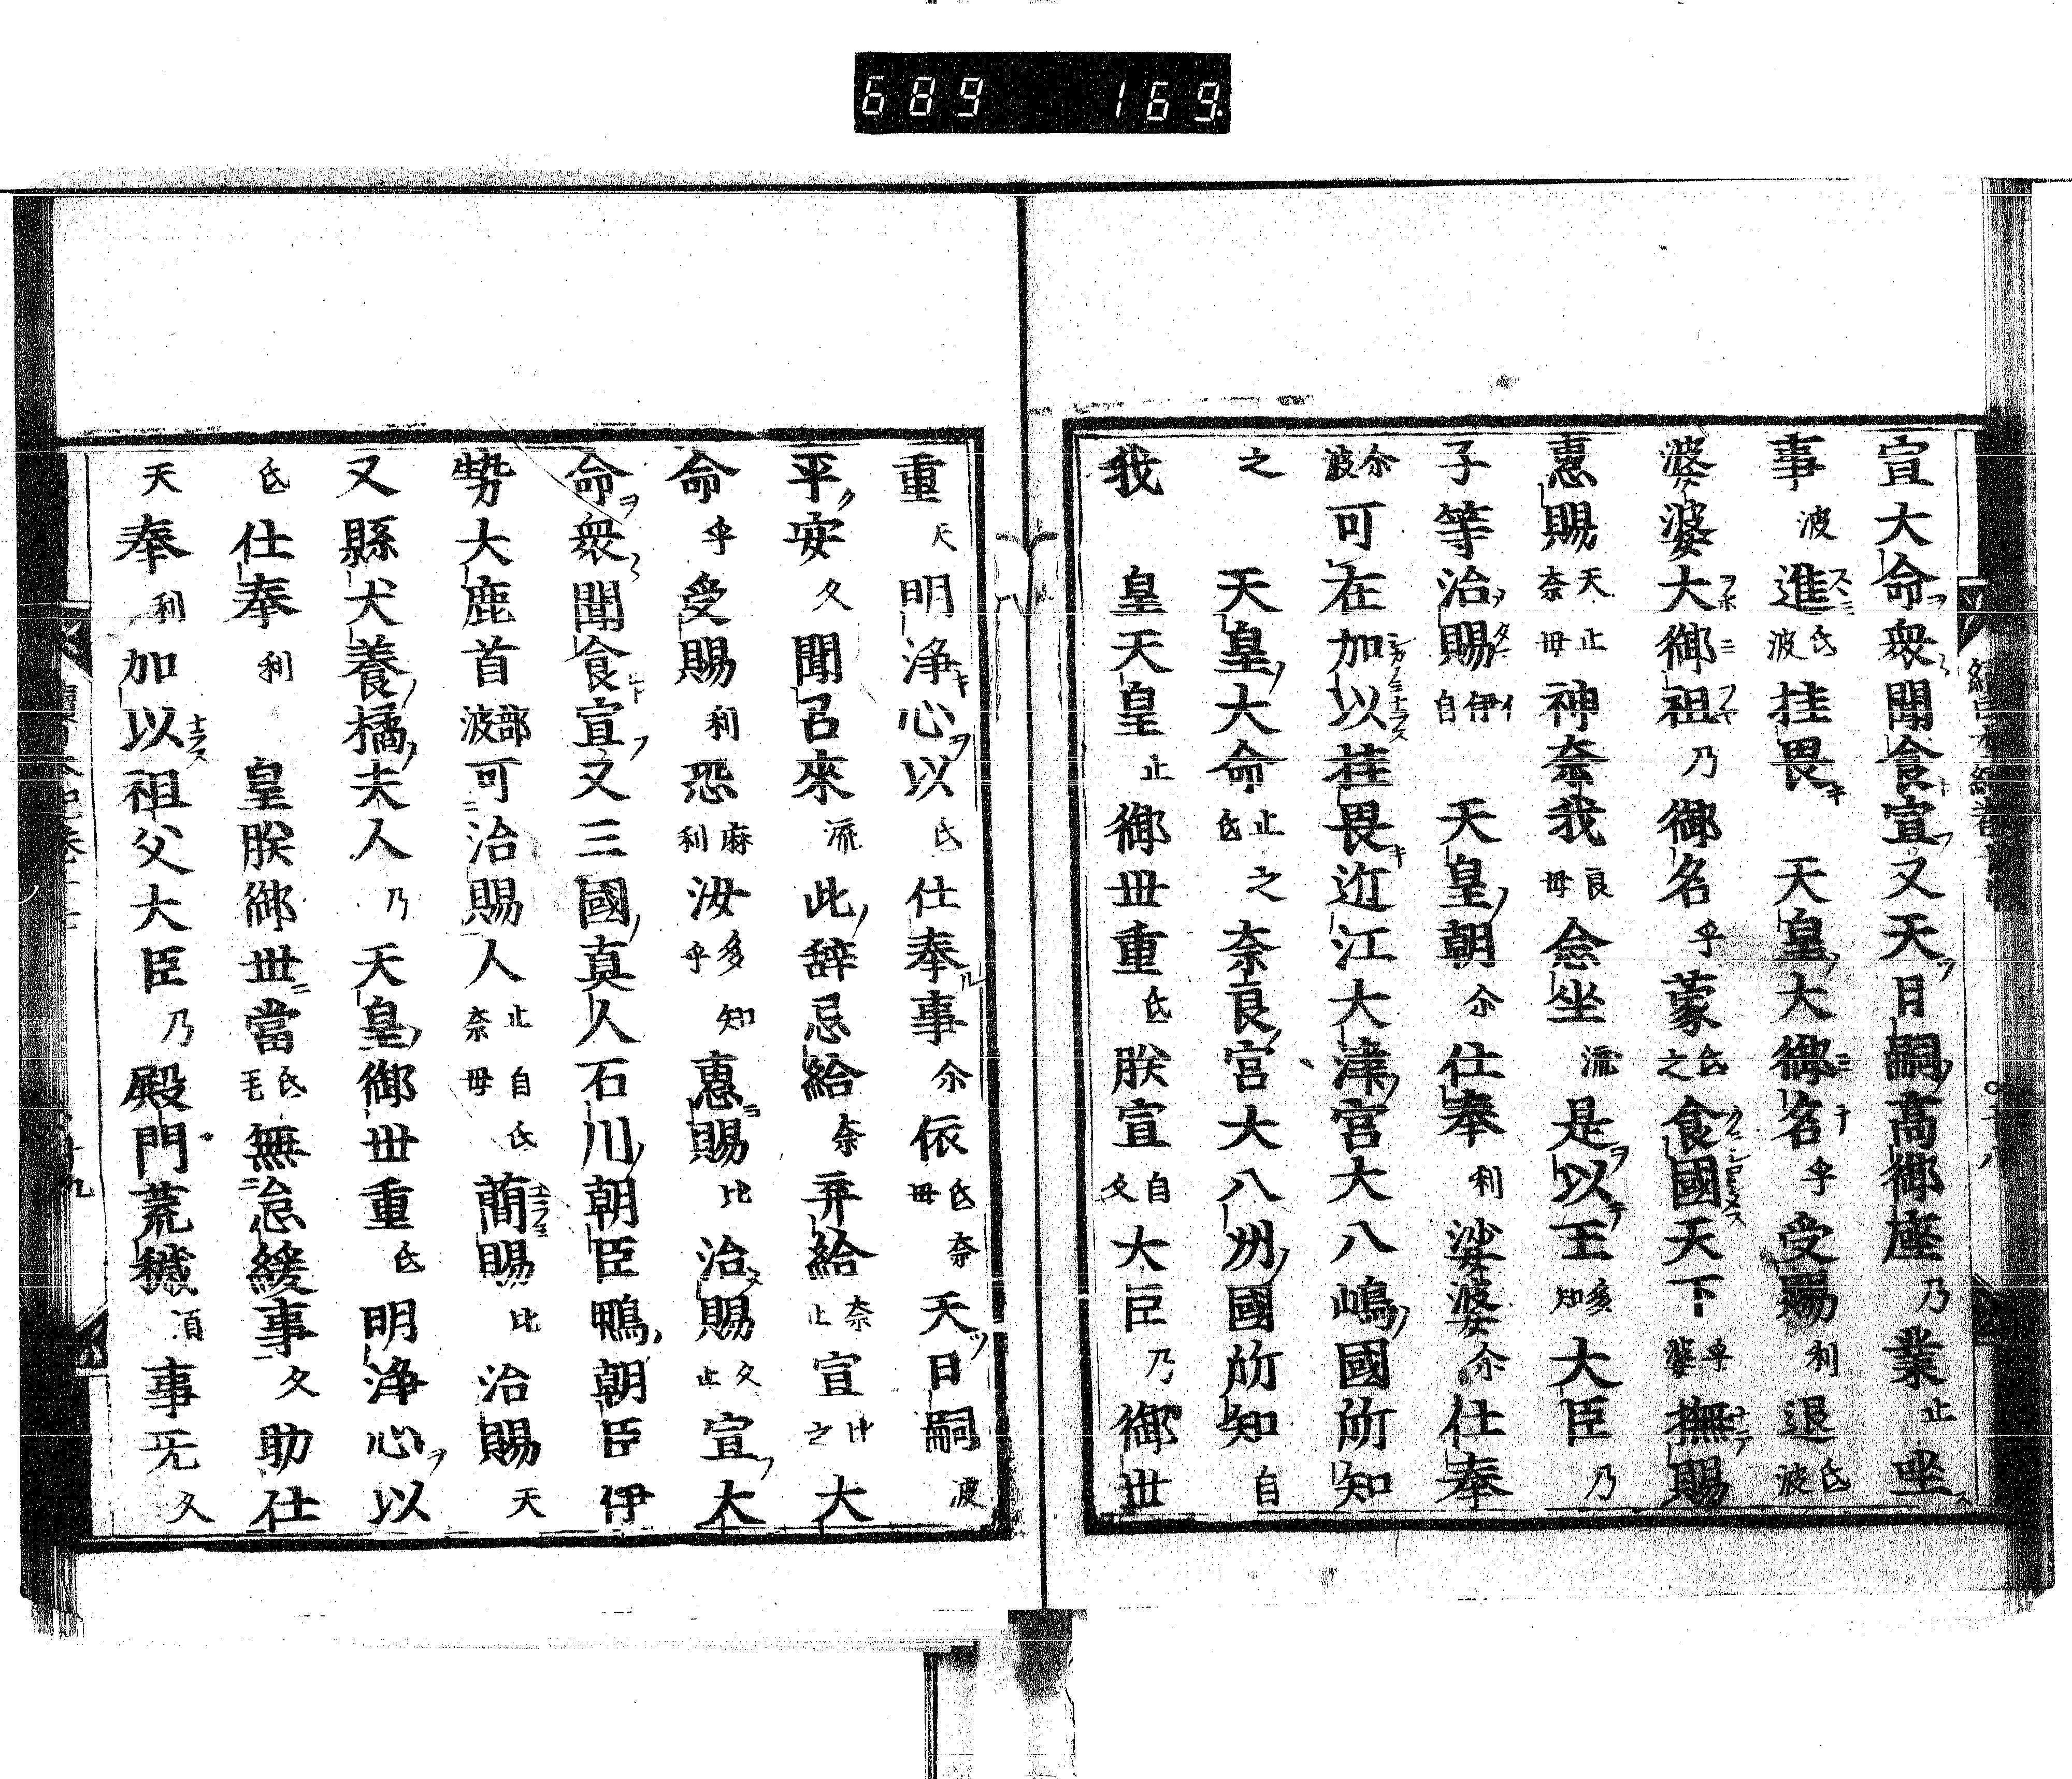 689 169.
宣大命衆聞食宣又天日嗣高御座乃業止坐
事波進氐波挂畏天皇大御名乎受賜利退氐波
婆婆大御祖乃御名乎蒙氐之食國天下乎婆撫賜
惠賜天奈止毋神奈我良毋念坐流是以王多知大臣乃
子等治賜伊自天皇朝尒仕奉利娑婆尒仕奉
尒波可在加以挂畏近江大津宮大八嶋國所知
之天皇大命止氐之奈良宮大八州國所知自
我皇天皇止御世重氐朕宣自久大臣乃御世
重天明浄心以氐仕奉事尒依氐毋奈天日嗣波
平安久聞召來流此辞忌給奈弃給奈止宣比之大
命乎受賜利恐麻利汝多乎知惠賜比治賜久止宣大
命衆聞食宣又三國真人石川朝臣鴨朝臣伊
勢大鹿首部波可治賜人止奈自毋氐蕳賜比治賜天
又縣犬養橘夫人乃天皇御世重氐明浄心以
氐仕奉利皇朕御世當氐毛無怠緩事久助仕
天奉利加以祖父大臣乃殿門荒穢須事旡久